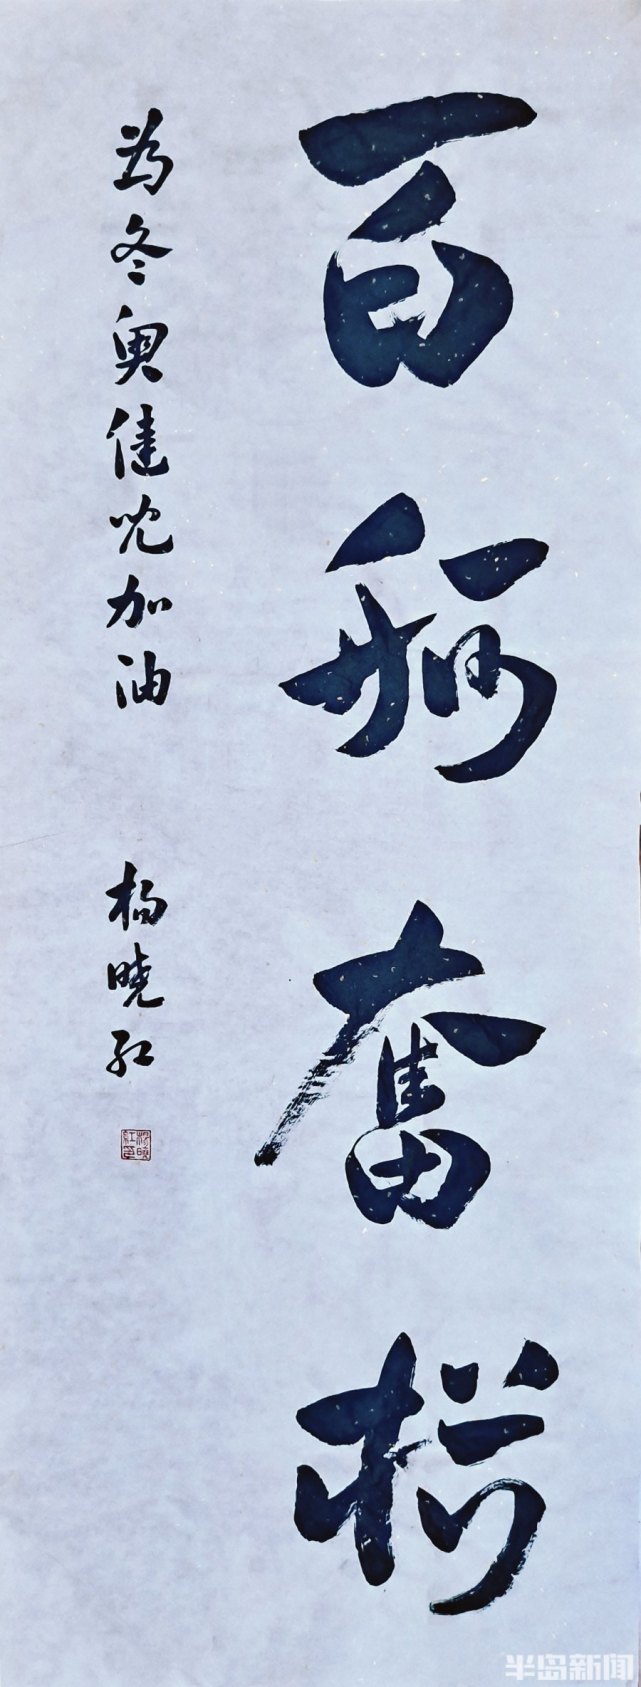 百舸奮楫
为冬奥健兒加油
杨晓红
杨晓红印
半岛新闻